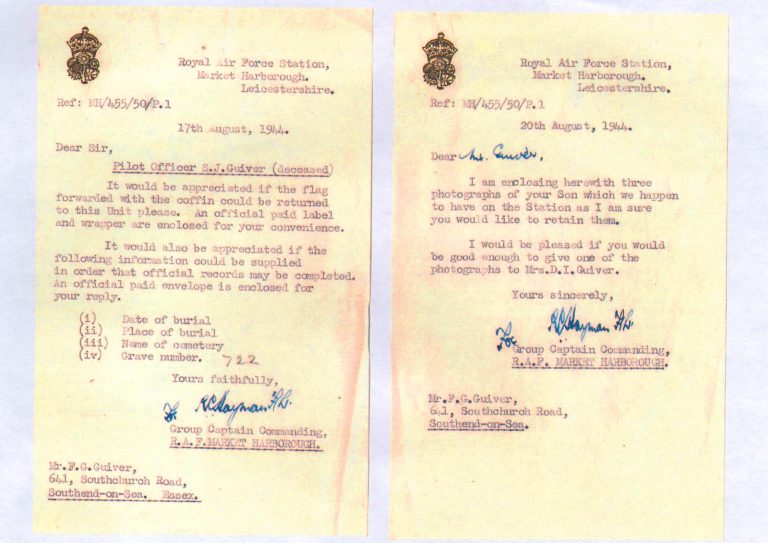 Royal Air Force Station,
Market Harborough.
Leicestershire.
Ref: MH/455/50/P.1
17th August, 1944.
Dear Sir,
Pilot Officer S.J.Guiver (deceased)
It would be appreciated if the flag
forwarded with the coffin could be returned
to this Unit please. An official paid label
and wrapper are enclosed for your convenience.
It would also be appreciated if the
following information could be supplied
in order that official records may be completed.
An official paid envelope is enclosed for
your reply.
(i) Date of burial
(ii) Place of burial
(iii) Name of cemetery
(iv) Grave number. 722
Yours faithfully,
For R.C. Hayman F/L.
Group Captain Commanding,
R.A.F.MARKET HARBOROUGH.
Mr.F.G.Guiver,
641, Southchurch Road,
Southend-on-Sea. Essex.
Royal Air Force Station,
Market Harborough.
Leicestershire.
Ref: MH/455/50/P.1
20th August, 1944.
Dear Mr. Guiver,
I am enclosing herewith three
photographs of your Son which we happen
to have on the Station as I am sure
you would like to retain them.
I would be pleased if you would
be good enough to give one of the
photographs to Mrs.D.I.Guiver.
Yours sincerely,
R.C. Hayman F/L.
For
Group Captain Commanding,
R.A.F. MARKET HARBOROUGH.
Mr.F.G.Guiver,
641, Southchurch Road,
Southend-on-Sea.